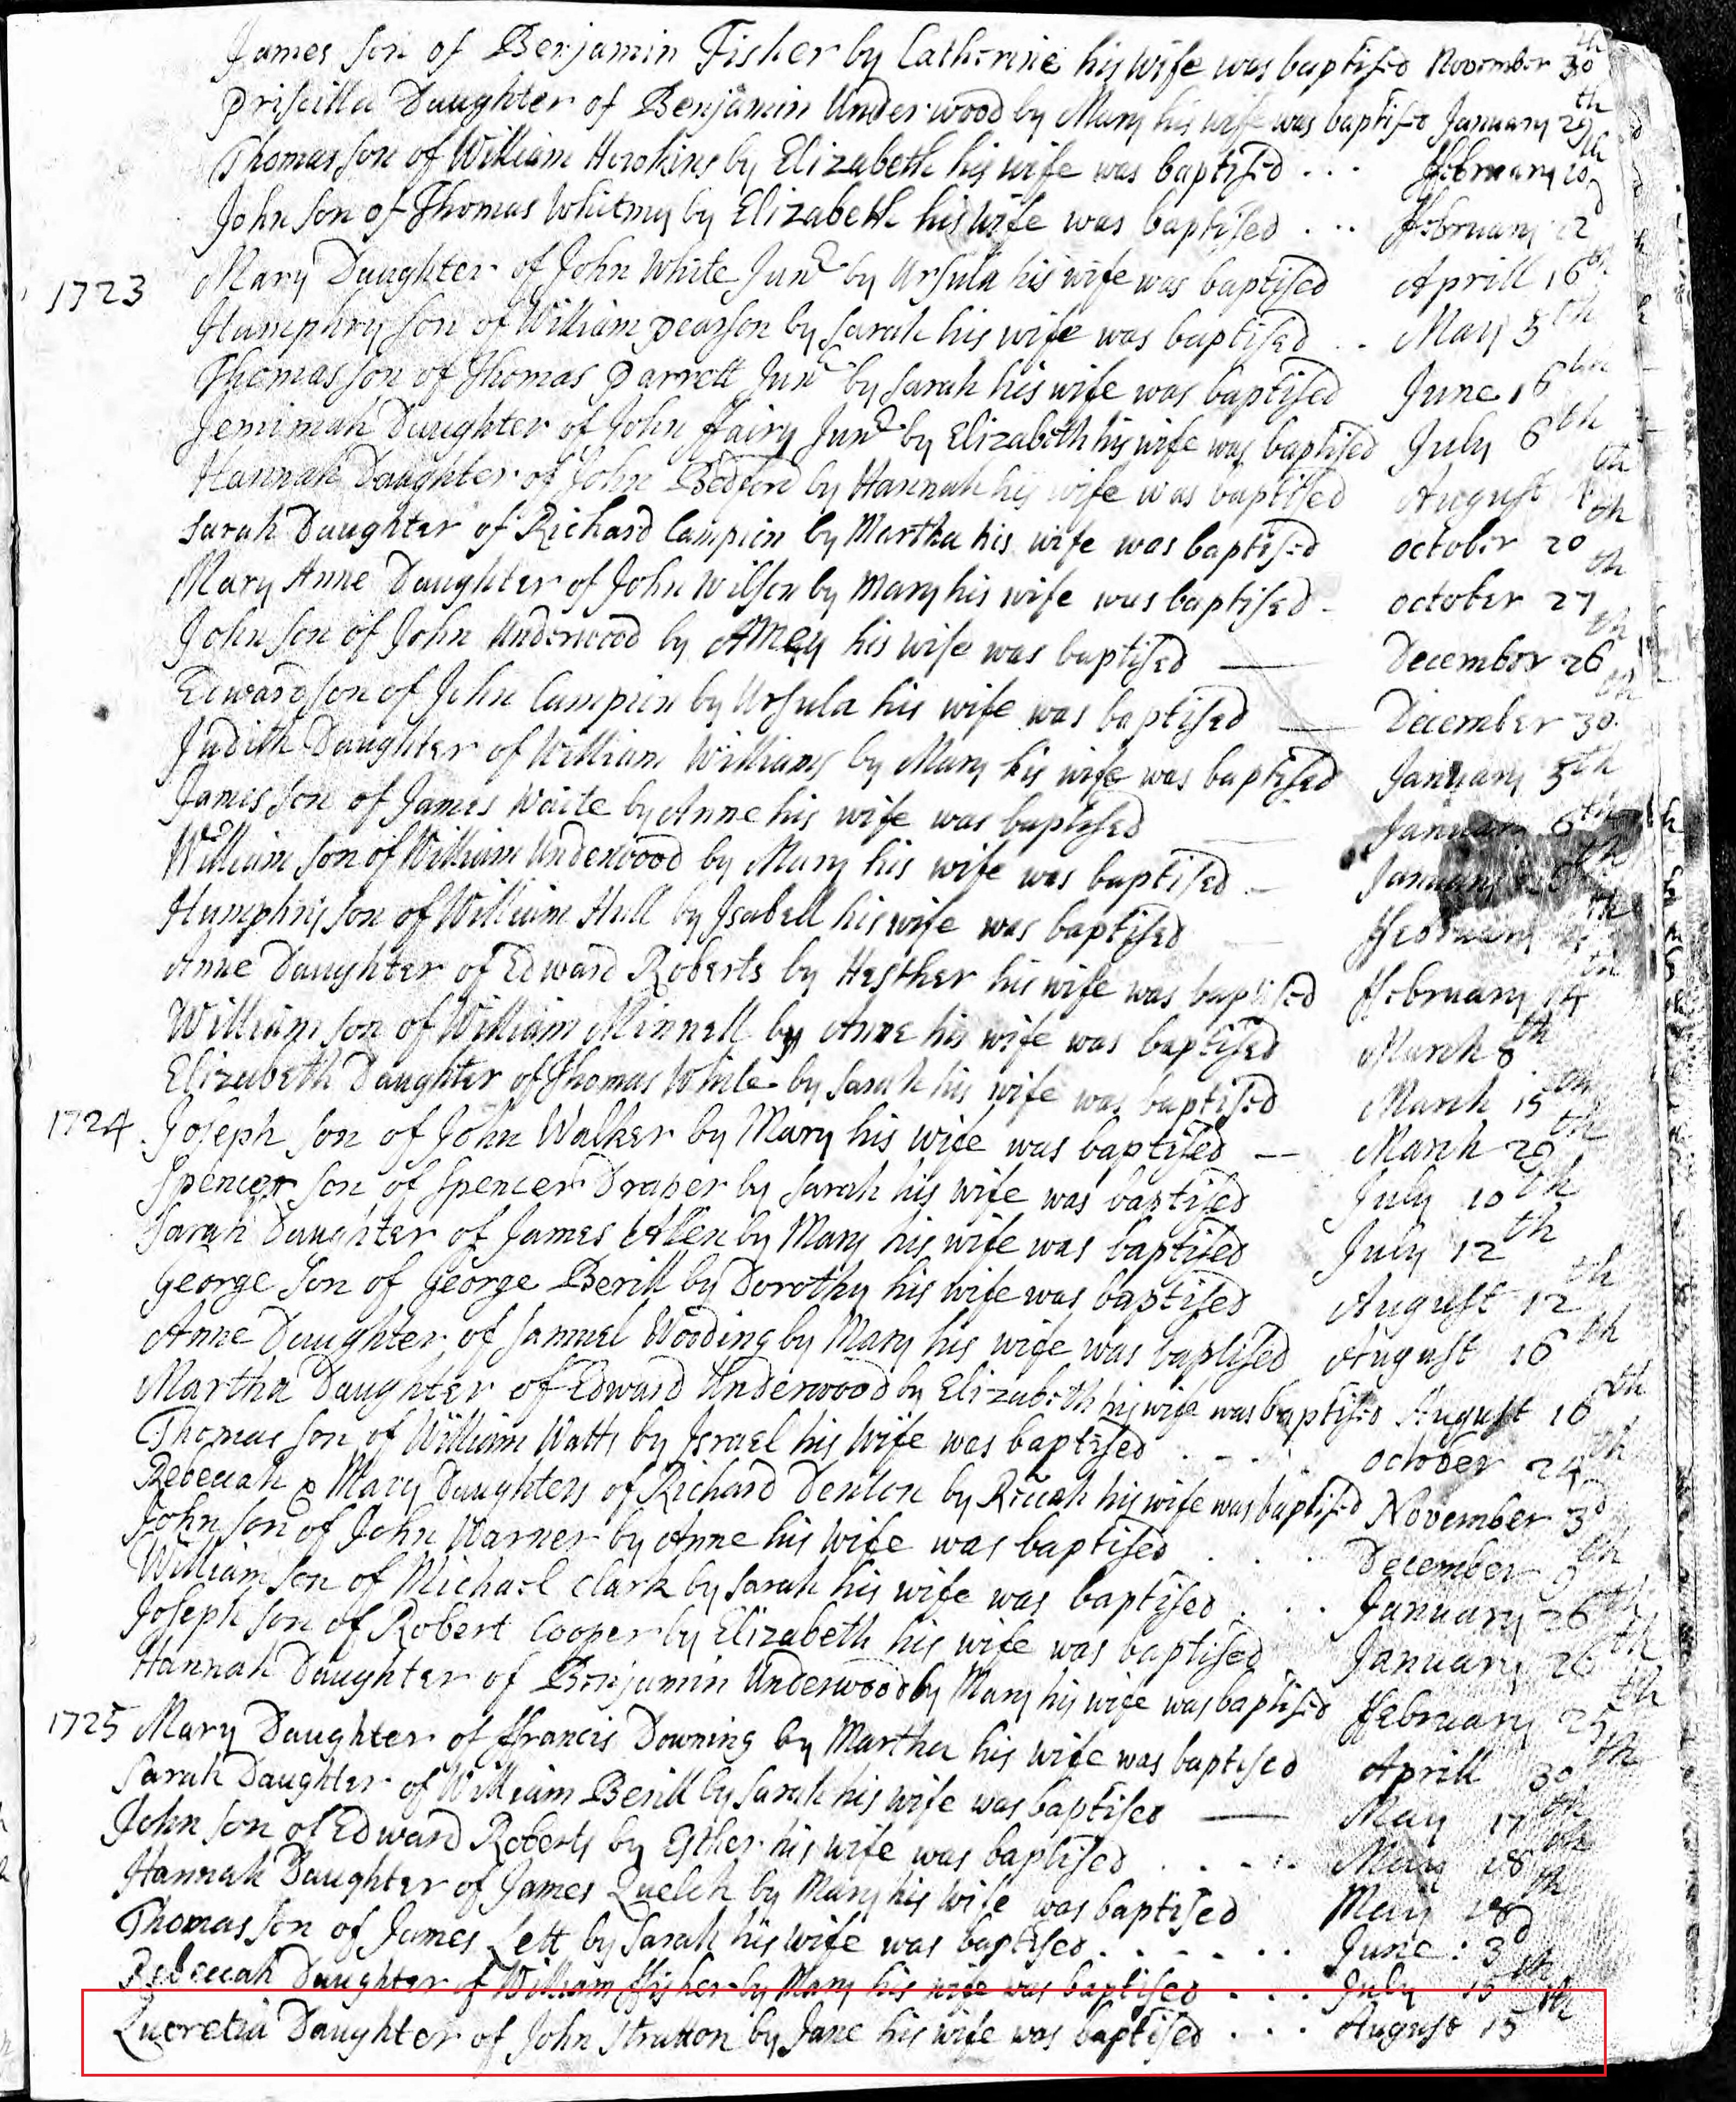 James son of Benjamin Fisher by Catherine his wife was baptised November 30th
Priscilla Daughter of Benjamin Underwood by Mary his wife was baptised January 29th
Thomas son of William Hoskins by Elizabeth his wife was baptised . . . ffebruary 20th
John son of Thomas Whitmy by Elizabeth his wife was baptised . . . ffebruary 22d
1723 Mary Daughter of John White Junr by Ursula his wife was baptised Aprill 16th
Humphry son of William Pearson by Sarah his wife was baptised . . May 5th
Thomas son of Thomas Parrett Junr by Sarah his wife was baptised June 16th
Jemimah Daughter of John ffairy Junr by Elizabeth his wife was baptised July 6th
Hannah Daughter of John Bedford by Hannah his wife was baptised August
Sarah Daughter of Richard Campion by Martha his wife was baptised october 20th
Mary Anne Daughter of John Wilson by Mary his wife was baptised - october 27th
John son of John Underwood by Amey his wife was baptised — December 26th
Edward son of John Campion by Ursula his wife was baptised — December 30th
Judith Daughter of William Williams by Mary his wife was baptised January 5th
James son of James Waite by Anne his wife was baptised January 6th
William son of William Underwood by Mary his wife was baptised - January
Humphry son of William Hull by Isabell his wife was baptised ffebruary
Anne Daughter of Edward Roberts by Hesther his wife was baptised ffebruary 14th
William son of William Minnell by Anne his wife was baptised March 8th
Elizabeth Daughter of Thomas White by Sarah his wife was baptised March 15th
1724 Joseph son of John Walker by Mary his wife was baptised — March 29th
Spencer son of Spencer Draper by Sarah his wife was baptised July 10th
Sarah Daughter of James Allen by Mary his wife was baptised July 12th
George son of George Berill by Dorothy his wife was baptised August 12th
Anne Daughter of Samuel Wooding by Mary his wife was baptised August 16th
Martha Daughter of Edward Underwood by Elizabeth his wife was baptised August 16th
Thomas son of William Watts by Israel his wife was baptised . . . october 24th
Rebeccah & Mary Daughters of Richard Denton by his wife was baptised November 3d
John son of John Warner by Anne his wife was baptised . . . December 9th
William son of Michael Clark by Sarah his wife was baptised . . . January 26th
Joseph son of Robert Cooper by Elizabeth his wife was baptised January 26th
Hannah Daughter of Benjamin Underwood by Mary his wife was baptised ffebruary 25th
1725 Mary Daughter of ffrancis Downing by Martha his wife was baptised Aprill 30th
Sarah Daughter of William Berill by Sarah his wife was baptised — May 17th
John son of Edward Roberts by Esther his wife was baptised . . . . May 18th
Hannah Daughter of James Quelch by Mary his wife was baptised May 28th
Thomas son of James Lett by Sarah his wife was baptised . . . . . . June : 3d
Rebeccah Daughter of William ffisher by Mary his wife was baptised . . . July 15th
Lucretia Daughter of John Stratton by Jane his wife was baptised . . . August 15th